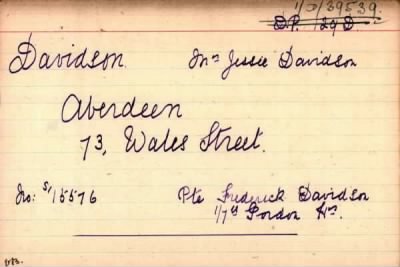 1/D/39539.
D.P. 129 D.
Davidson. Mrs Jessie Davidson
Aberdeen
73, Wales Street.
No: S/15576 Pte Frederick Davidson
1/7th Gordon Hrs.